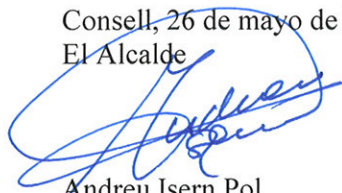 Consell, 26 de mayo de
El Alcalde
Andreu Isern Pol